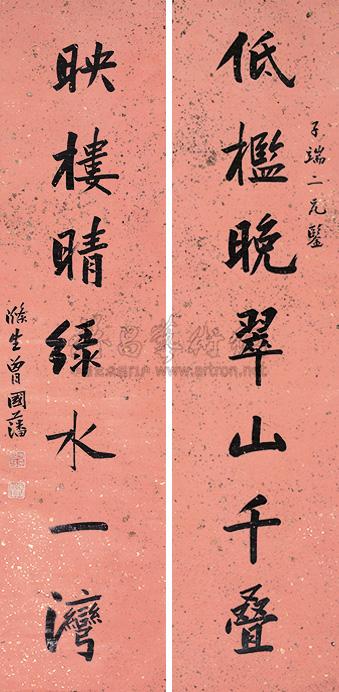 低檻晚翠山千叠
子端二兄鑒
映樓晴綠水一灣
滌生曾國藩
www.artron.net